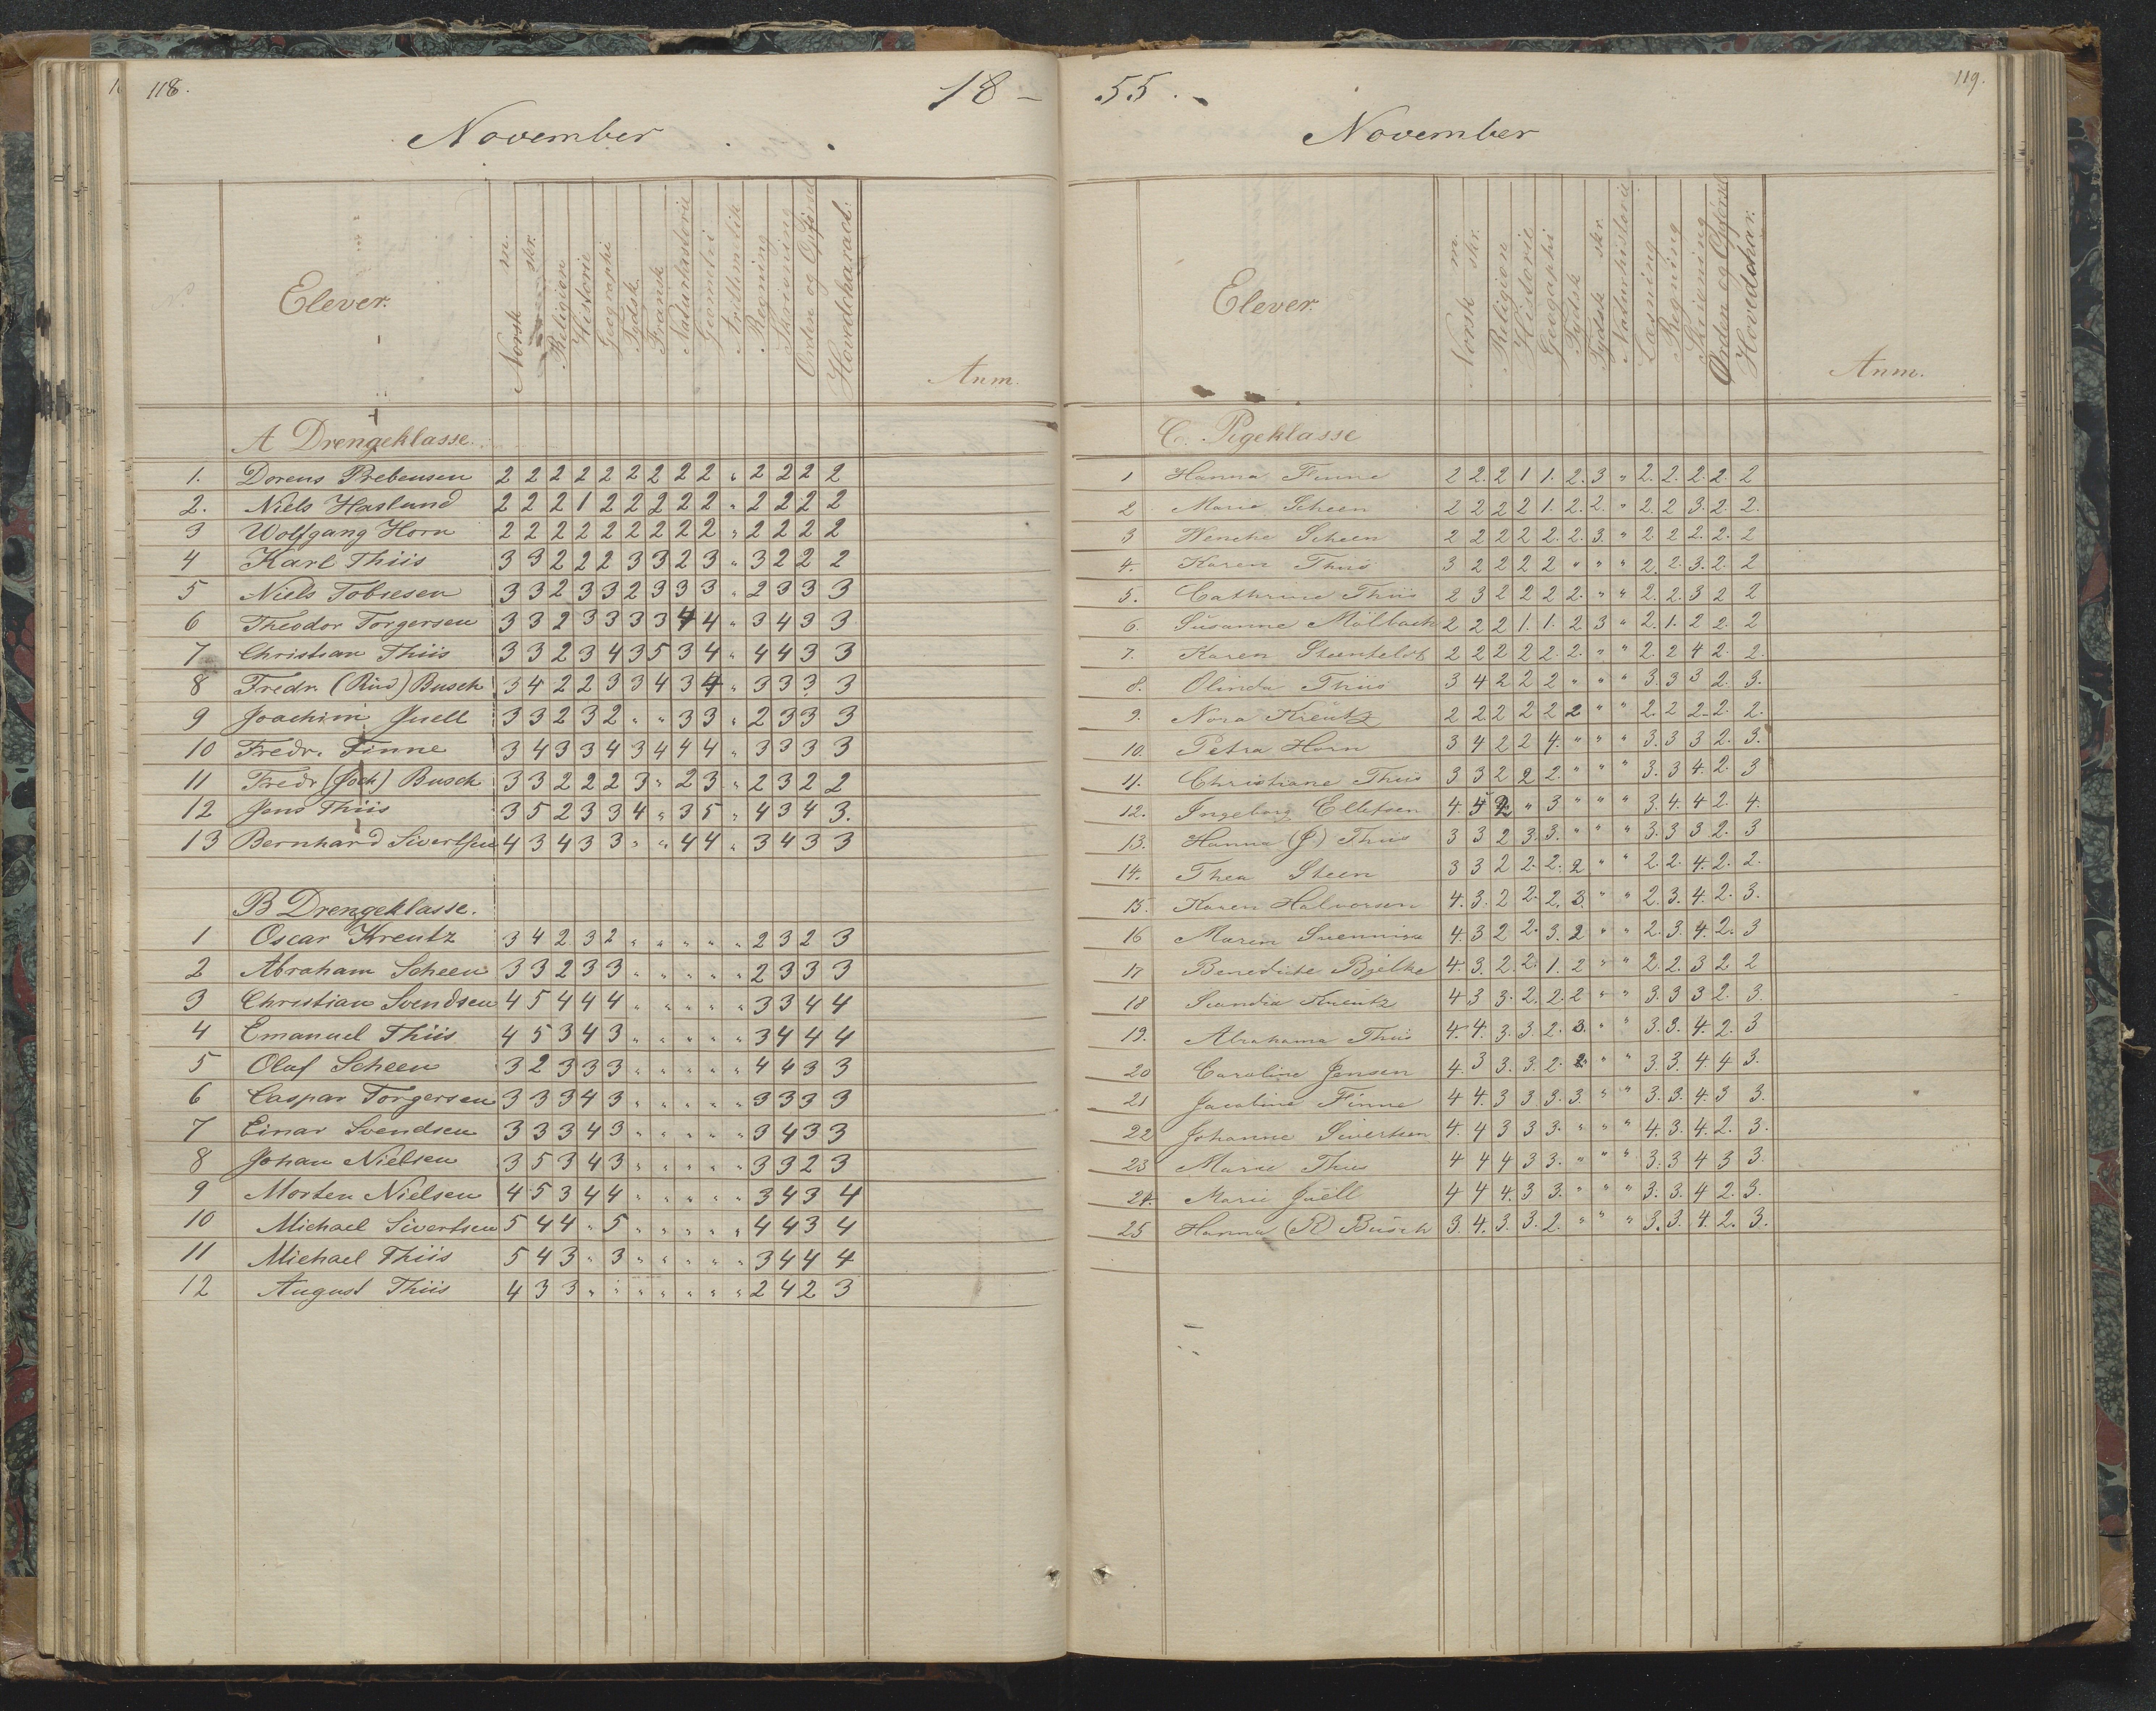 118.
18 –
November
Elever.
Norsk m.
skr.
Religion
Historie
Geographi
Tydsk
Fransk
Naturhistorie
Geometri
Arithmetik
Regning
Skrivning
Orden og Opførsel
Hovedcharact:
Anm.
A Drengeklasse.
1. Dorens Prebensen 2 2 2 2 2 2 2 2 2 " 2 2 2 2
2. Niels Haslund 2 2 2 1 2 2 2 2 2 " 2 2 2 2
3 Wolfgang Horn 2 2 2 2 2 2 2 2 2 " 2 2 2 2
4 Karl Thiis 3 3 2 2 2 3 3 2 3 " 3 2 2 2
5 Niels Tobiesen 3 3 2 3 3 2 3 3 3 " 2 3 3 3
6 Theodor Torgersen 3 3 2 3 3 3 3 4 4 " 3 4 3 3
7 Christian Thiis 3 3 2 3 4 3 5 3 4 " 4 4 3 3
8 Fredr. (Rud) Busch 3 4 2 2 3 3 4 3 4 " 3 3 3 3
9 Joachim Juell 3 3 2 3 2 " " 3 3 " 2 3 3 3
10 Fredr. Finne 3 4 3 3 4 3 4 4 4 " 3 3 3 3
11 Fredr (Joch) Busch 3 3 2 2 2 3 " 2 3 " 2 3 2 2
12 Jens Thiis 3 5 2 3 3 4 " 3 5 " 4 3 4 3.
13 Bernhard Sivertsen 4 3 4 3 3 " " 4 4 " 3 4 3 3
B Drengeklasse.
1 Oscar Kreutz 3 4 2 3 2 " " " " " 2 3 2 3
2 Abraham Scheen 3 3 2 3 3 " " " " " 2 3 3 3
3 Christian Svendsen 4 5 4 4 4 " " " " " 3 3 4 4
4 Emanuel Thiis 4 5 3 4 3 " " " " " 3 4 4 4
5 Olaf Scheen 3 2 3 3 3 " " " " " 4 4 3 3
6 Caspar Torgersen 3 3 3 4 3 " " " " " 3 3 3 3
7 Einar Svendsen 3 3 3 4 3 " " " " " 3 4 3 3
8 Johan Nielsen 3 5 3 4 3 " " " " " 3 3 2 3
9 Morten Nielsen 4 5 3 4 4 " " " " " 3 4 3 4
10 Michael Sivertsen 5 4 4 " 5 " " " " " 4 4 3 4
11 Michael Thiis 5 4 3 " 3 " " " " " 3 4 4 4
12 August Thiis 4 3 3 " " " " " " " 2 4 2 3
55.
119.
November
Elever.
Norsk m.
skr.
Religion
Historie
Geographi
Tydsk
Tydsk skr.
Naturhistorie
Læsning
Regning
Skrivning
Orden og Opførsel
Hovedchar.
Anm.
C. Pigeklasse
1 Hanna Finne 2 2. 2 1 1. 2. 3 " 2. 2. 2. 2. 2
2 Marie Scheen 2 2 2 2 1. 2. 2. " 2. 2 3. 2. 2.
3 Wenche Scheen 2 2 2 2 2. 2. 3. " 2 2 2. 2. 2
4. Karen Thiis 3 2 2 2 2 " " " 2. 2. 3. 2. 2
5. Cathrine Thiis 2 3 2 2 2 2. " " 2. 2. 3 2 2
6. Susanne Mölbach 2 2 2 1. 1. 2 3 " 2. 1. 2 2. 2
7. Karen Steenfeldt 2 2 2 2 2. 2. " " 2. 2 4 2. 2.
8. Olinda Thiis 3 4 2 2 2 " " " 3. 3 3 2. 3.
9. Nora Kreutz 2 2 2 2 2 2 " " 2. 2 2. 2. 2.
10. Petra Horn 3 4 2 2 4. " " " 3. 3 3 2. 3.
11. Christiane Thiis 3 3 2 2 2. " " " 3. 3 4. 2. 3
12. Ingeborg Ellefsen 4. 5 2 " 3 " " " 3. 4. 4 2. 4.
13. Hanna (J) Thiis 3 3 2 3. 3. " " " 3. 3 3 2. 3
14. Thea Steen 3 3 2 2. 2. 2 " " 2. 2. 4. 2. 2.
15. Karen Halvorsen 4. 3. 2 2. 2. 3. " " 2. 3. 4. 2. 3.
16 Maren 4. 3 2 2. 3. 2 " " 2. 3. 4. 2. 3
17 Benedicte Bjelke 4. 3. 2. 2. 1. 2 " " 2. 2. 3 2 2
18 Scandia Kreutz 4 3 3. 2. 2. 2 " " 3. 3 3 2. 3.
19. Abrahama Thiis 4. 4. 3. 3. 2. 3. " " 3. 3. 4. 2. 3
20 Caroline Jensen 4. 3 3. 3. 2. 2 " " 3. 3. 4 4 3.
21 Jacobine Finne 4 4. 3 3. 3. 3. " " 3. 3. 4. 3 3.
22 Johanne Sivertsen 4. 4 3 3 3. " " " 4. 3. 4. 2. 3.
23 Marie Thiis 4 4 4 3 3. " " " 3. 3 4 3 3.
24. Marie Juell 4 4 4. 3 3. " " " 3. 3. 4 2. 3.
25 Hanna (R) Busch 3. 4. 3. 3. 2. " " " 3. 3. 4. 2. 3.